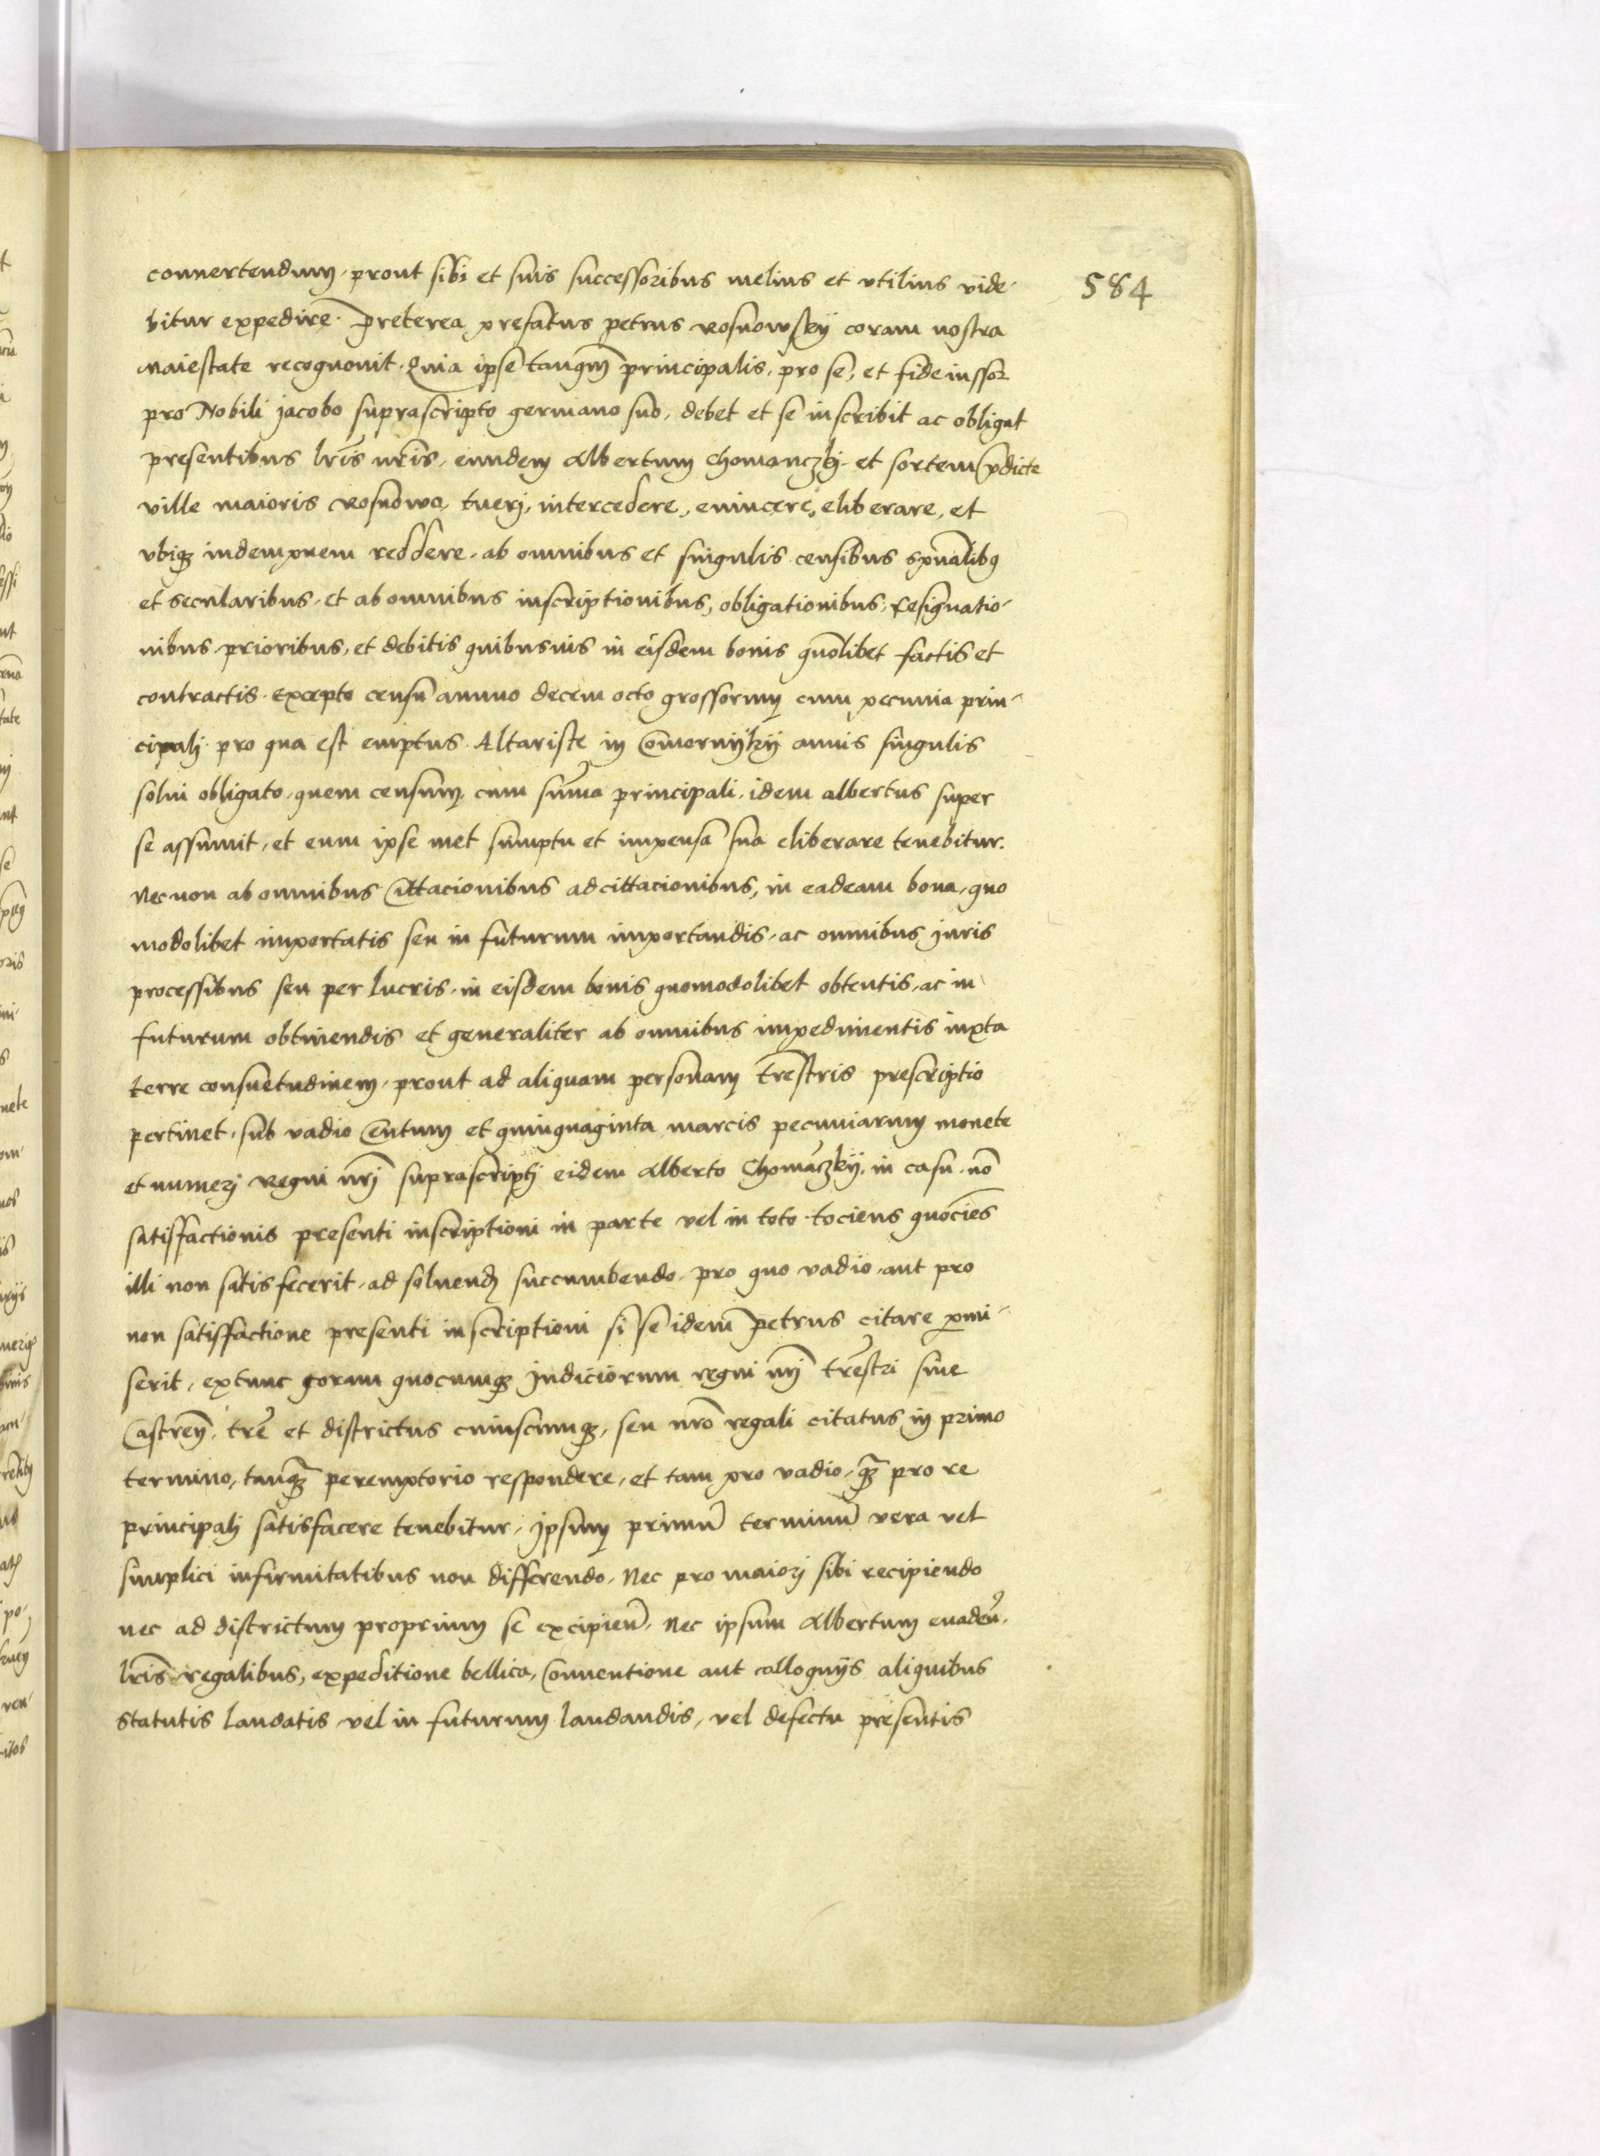 584
conuertendum, prout sibi et suis successoribus melius et vtilius vide-
bitur expedire. Preterea prefatus petrus Rosnowsky coram nostra
Maiestate recognouit. Quia ipse tanqm̄ principalis, pro se, et fideiussor
pro Nobili jacobo suprascripto germano suo, debet et se inscribit ac obligat
presentibus lr̄is nr̄is, eundem Albertum Chomanczky et sortem p̄dicte
ville maioris Rosnowo, tuerj, intercedere, euincere, eliberare, et
vbiqz indempnem reddere, ab omnibus et singulis censibus sp̄ualibꝫ
et secularibus, et ab omnibus inscriptionibus, obligationibus, Resignatio-
nibus prioribus, et debitis quibusuis in eisdem bonis quōlibet factis et
contractis. Excepto censu annuo decem octo grossorum cum pecunia prin-
cipalj pro qua est emptus Altariste in Comornyky annis singulis
solui obligato, quem censum, cum sum̄a principali, idem albertus super
se assumit, et eum ipse met sumptu et impensa sua eliberare tenebitur.
Nec non ab omnibus Cittacionibus adcittacionibus, in eadeam bona, quo
modolibet importatis seu in futurum importandis, ac omnibus juris
processibus seu per lucris, in eisdem bonis quomodolibet obtentis, ac in
futurum obtinendis et generaliter ab omnibus impedimentis iuxta
terre consuetudinem, prout ad aliquam personam tr̄estris prescriptio
pertinet, sub vadio Centum et quinquaginta marcis pecuniarum monete
et numerj Regni nr̄j suprascriptj eidem Alberto Chomāczky, in casu nō
satisfactionis presenti inscriptioni in parte vel in toto tociens quocies
illi non satisfecerit, ad soluend succumbendo, pro quo vadio, aut pro
non satisfactione presenti inscriptioni si se idem Petrus citare p̄mi-
serit, extunc coram quocumqz Judiciorum regni nr̄j tr̄estri siue
Castren̄, tr̄e et districtus cuiuscumqz, seu nr̄o regali citatus in primo
termino, tanqz̄ peremptorio respondere, et tam pro vadio, qz̄ pro re
principalj satisfacere tenebitur, Ipsum primū terminū vera vel
simplici infirmitatibus non differendo, Nec pro maiorj sibi recipiendo
nec ad districtum proprium se excipien̄, Nec ipsum Albertum euaden̄,
lr̄is regalibus, expeditione bellica, Conuentione aut colloquijs aliquibus
statutis laudatis, vel in futurum laudandis, vel defectu presentis